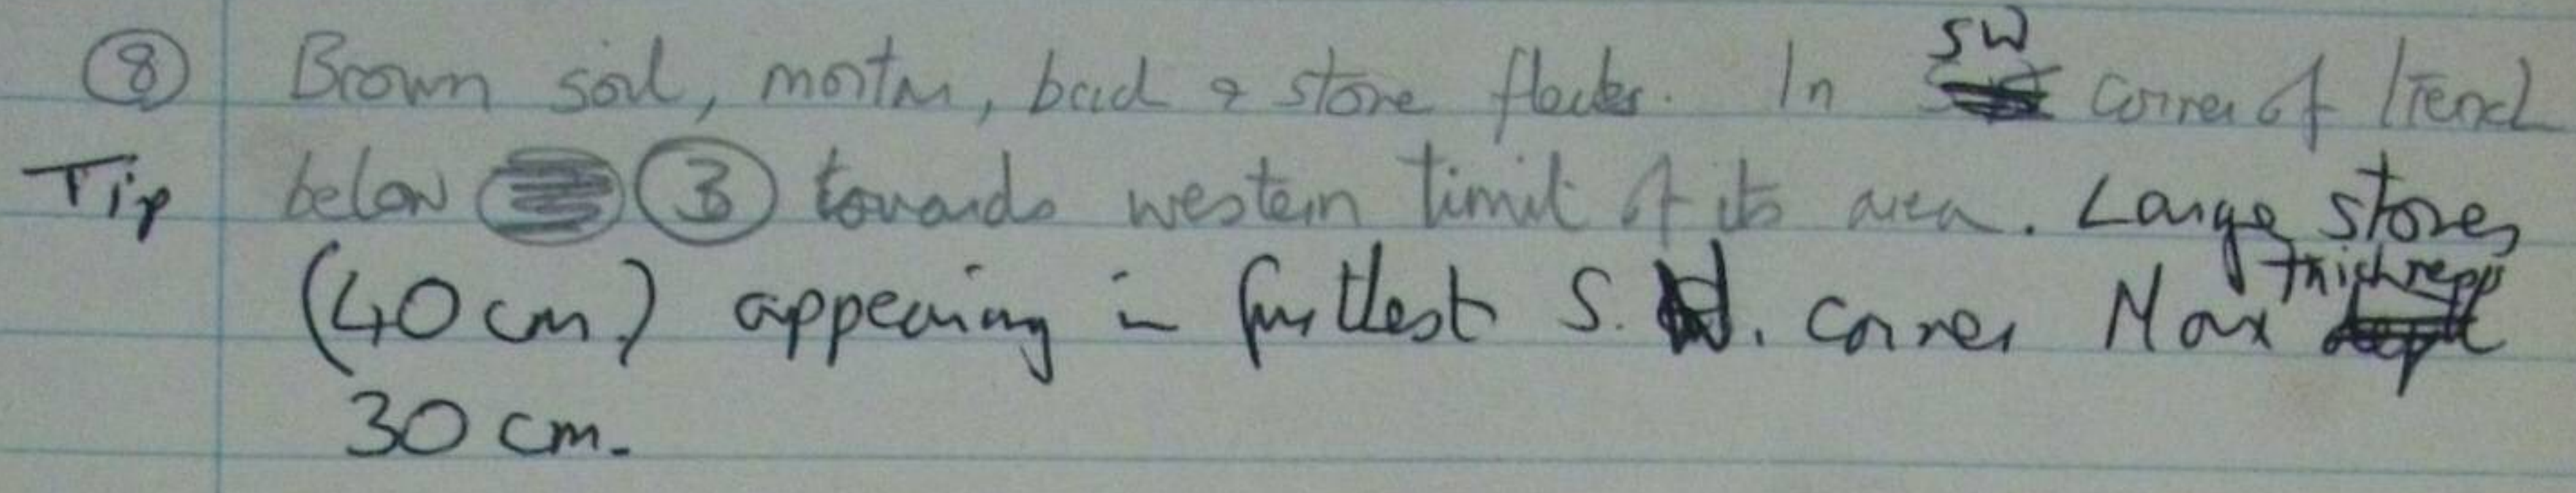 ⑧ Brown soil, mortar, brick & stone flecks. In SW corner of trench
Tip below ③ towards western limit of its area. Large stones
(40cm) appearing in furthest S.W. corner Max thickness
30cm.